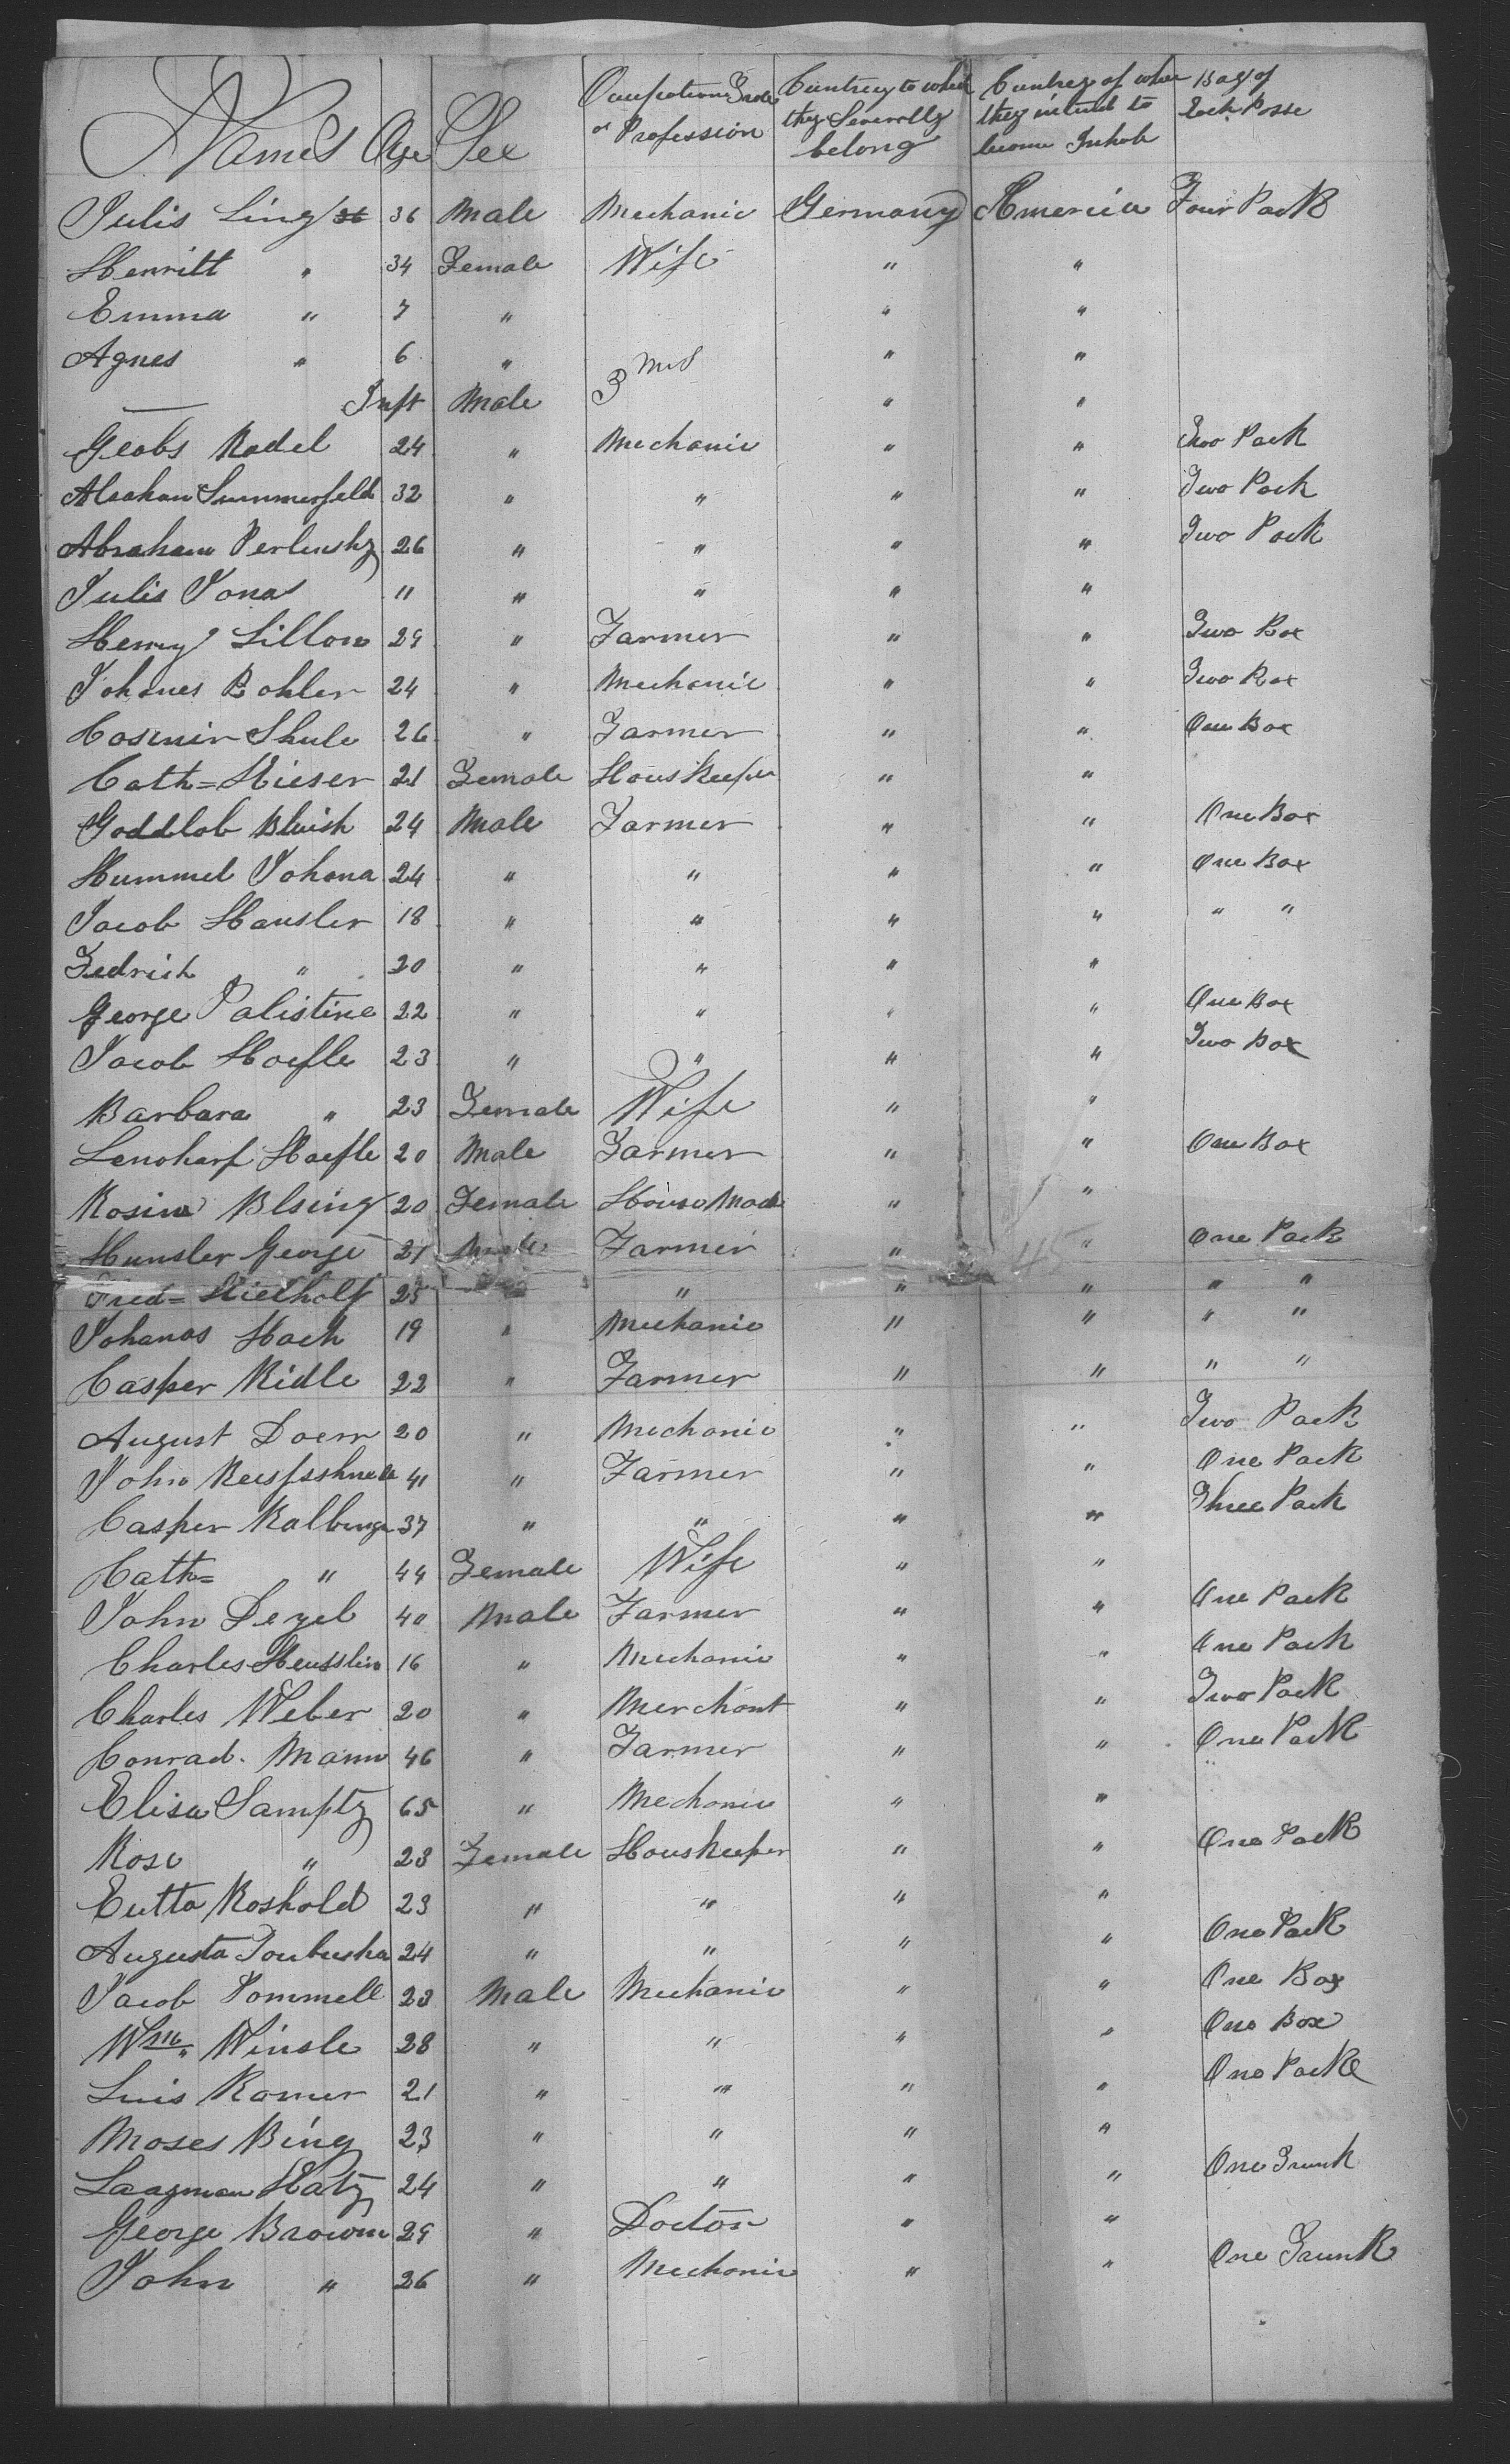 Names Age Sex Ocupation Trade or Profession Cuntrey to which they Severally belong Cuntrey of when they intend to become Inhab Bag of Each Passe
Julis Ling 36 36 Male Mechanic Germany America Four Pack
Henritt " 34 Female Wife " "
Emma " 7 " " "
Agnes " 6 " " "
— Inft Male 3 Mos " "
Geobs Radel 24 " Mechanic " " Two Pack
Abraham Summerfeld 32 " " " " Two Pack
Abraham Perlinsky 26 " " " " Two Pack
Julis Jonas 11 " " " "
Henry Lillow 29 " Farmer " " Two Box
Johanes Bohler 24 " Mechanic " " Two Box
Cosimir Shule 26 " Farmer " " One Box
Cath= Hieser 21 Female Houskeeper " "
Goddlob Bluish 24 Male Farmer " " One Box
Hummel Johana 24 " " " " One Box
Jacob Hausler 18 " " " " " "
Fedrich " 20 " " " "
George Palistine 22 " " " " One Box
Jacob Hoefle 23 " " " " Two Box
Barbara " 23 Female Wife " "
Lenoharf Haefle 20 Male Farmer " " One Box
Rosina Blsing 20 Female House Made " "
Hunsler George 21 Male Farmer " 45 " One Pack
Fred= 25 " " " " "
Johanas Hach 19 " Mechanic " " " "
Casper Ridle 22 " Farmer " " " "
August Doerr 20 " Mechanic " " Two Pack
John 41 " Farmer " " One Pack
Casper Kalbinger 37 " " " " Three Pack
Cath= " 44 Female Wife " "
John Dezel 40 Male Farmer " " One Pack
Charles Heusslin 16 " Mechanic " " One Pack
Charles Weber 20 " Merchant " " Two Pack
Conrad. Mann 46 " Farmer " " One Pack
Elisa Samptz 65 " Mechanic " "
Rose " 23 Female Houskeeper " " One Pack
Eutta Roshold 23 " " " "
Augusta Toubusha 24 " " " " One Pack
Jacob Pommell 23 Male Mechanic " " One Box
Wm Winsle 28 " " " " One Box
Luis Romer 21 " " " " One Pack
Moses Bing 23 " " " "
Laazman Hatz 24 " " " " One Trunk
George Brown 29 " Doctor " "
John " 26 " Mechanic " " One Trunk